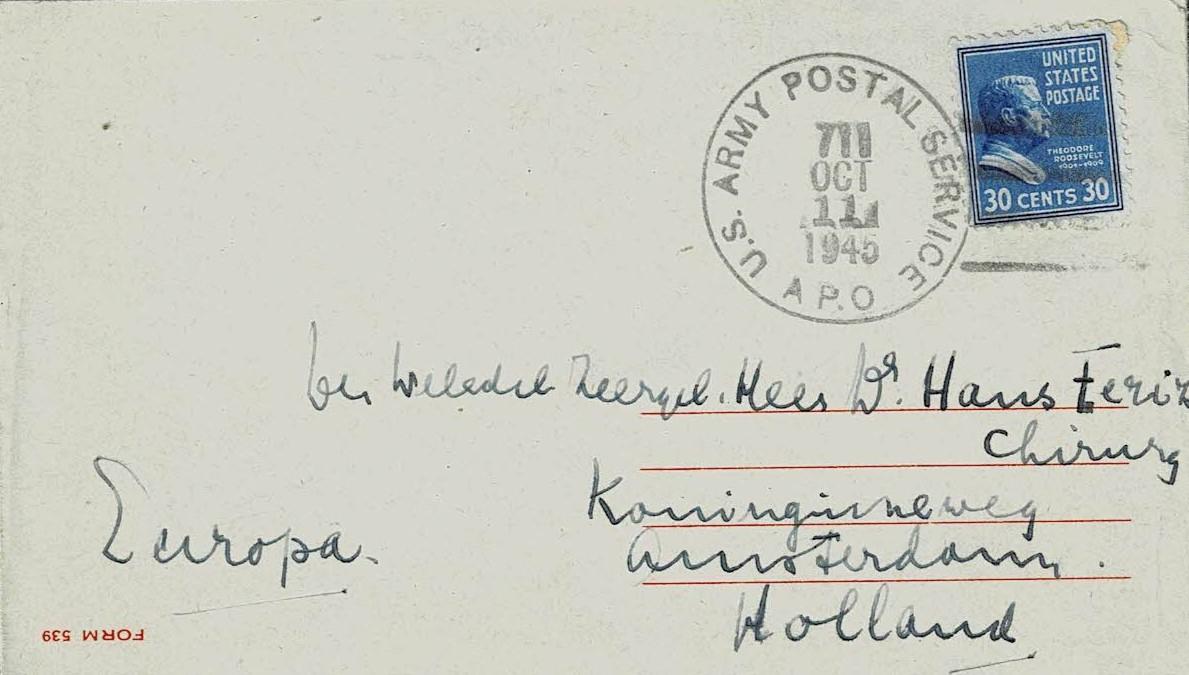 U.S. ARMY POSTAL SERVICE
711
OCT
11
1945
A P.O
UNITED
STATES
POSTAGE
THEODORE
ROOSEVELT
1901-1909
30 CENTS 30
Weledel Zeergel. Heer Dr. Hans Feriz
Chirurg
Koninginneweg
Amsterdam.
Holland
Europa.
FORM 539